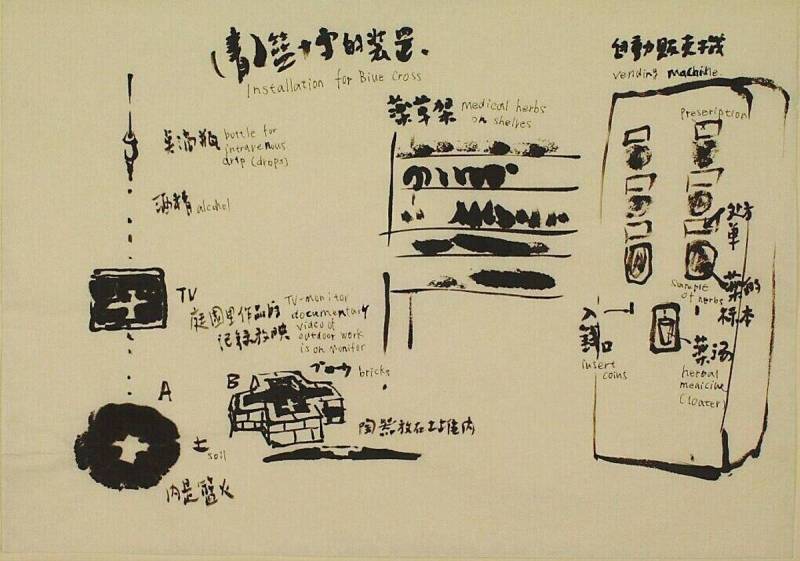 (青)籃十字的装置.
Installation for Blue Cross
自動販売機
vending machine.
藥草架 medical herbs
on shelves
prescription
点滴瓶 bottle for
intravenous
drip (drops)
酒精 alcohol
处方
单
TV
庭園里作品的
记録放映
TV-monitor
documentary
video of
outdoor work
is on monitor
sample
of herbs
藥的
标本
入
錢口
insert
coins
藥湯
herbal
medicine
(water)
ブロック bricks
A
B
陶器放在土
内
土 soil
内是籃火